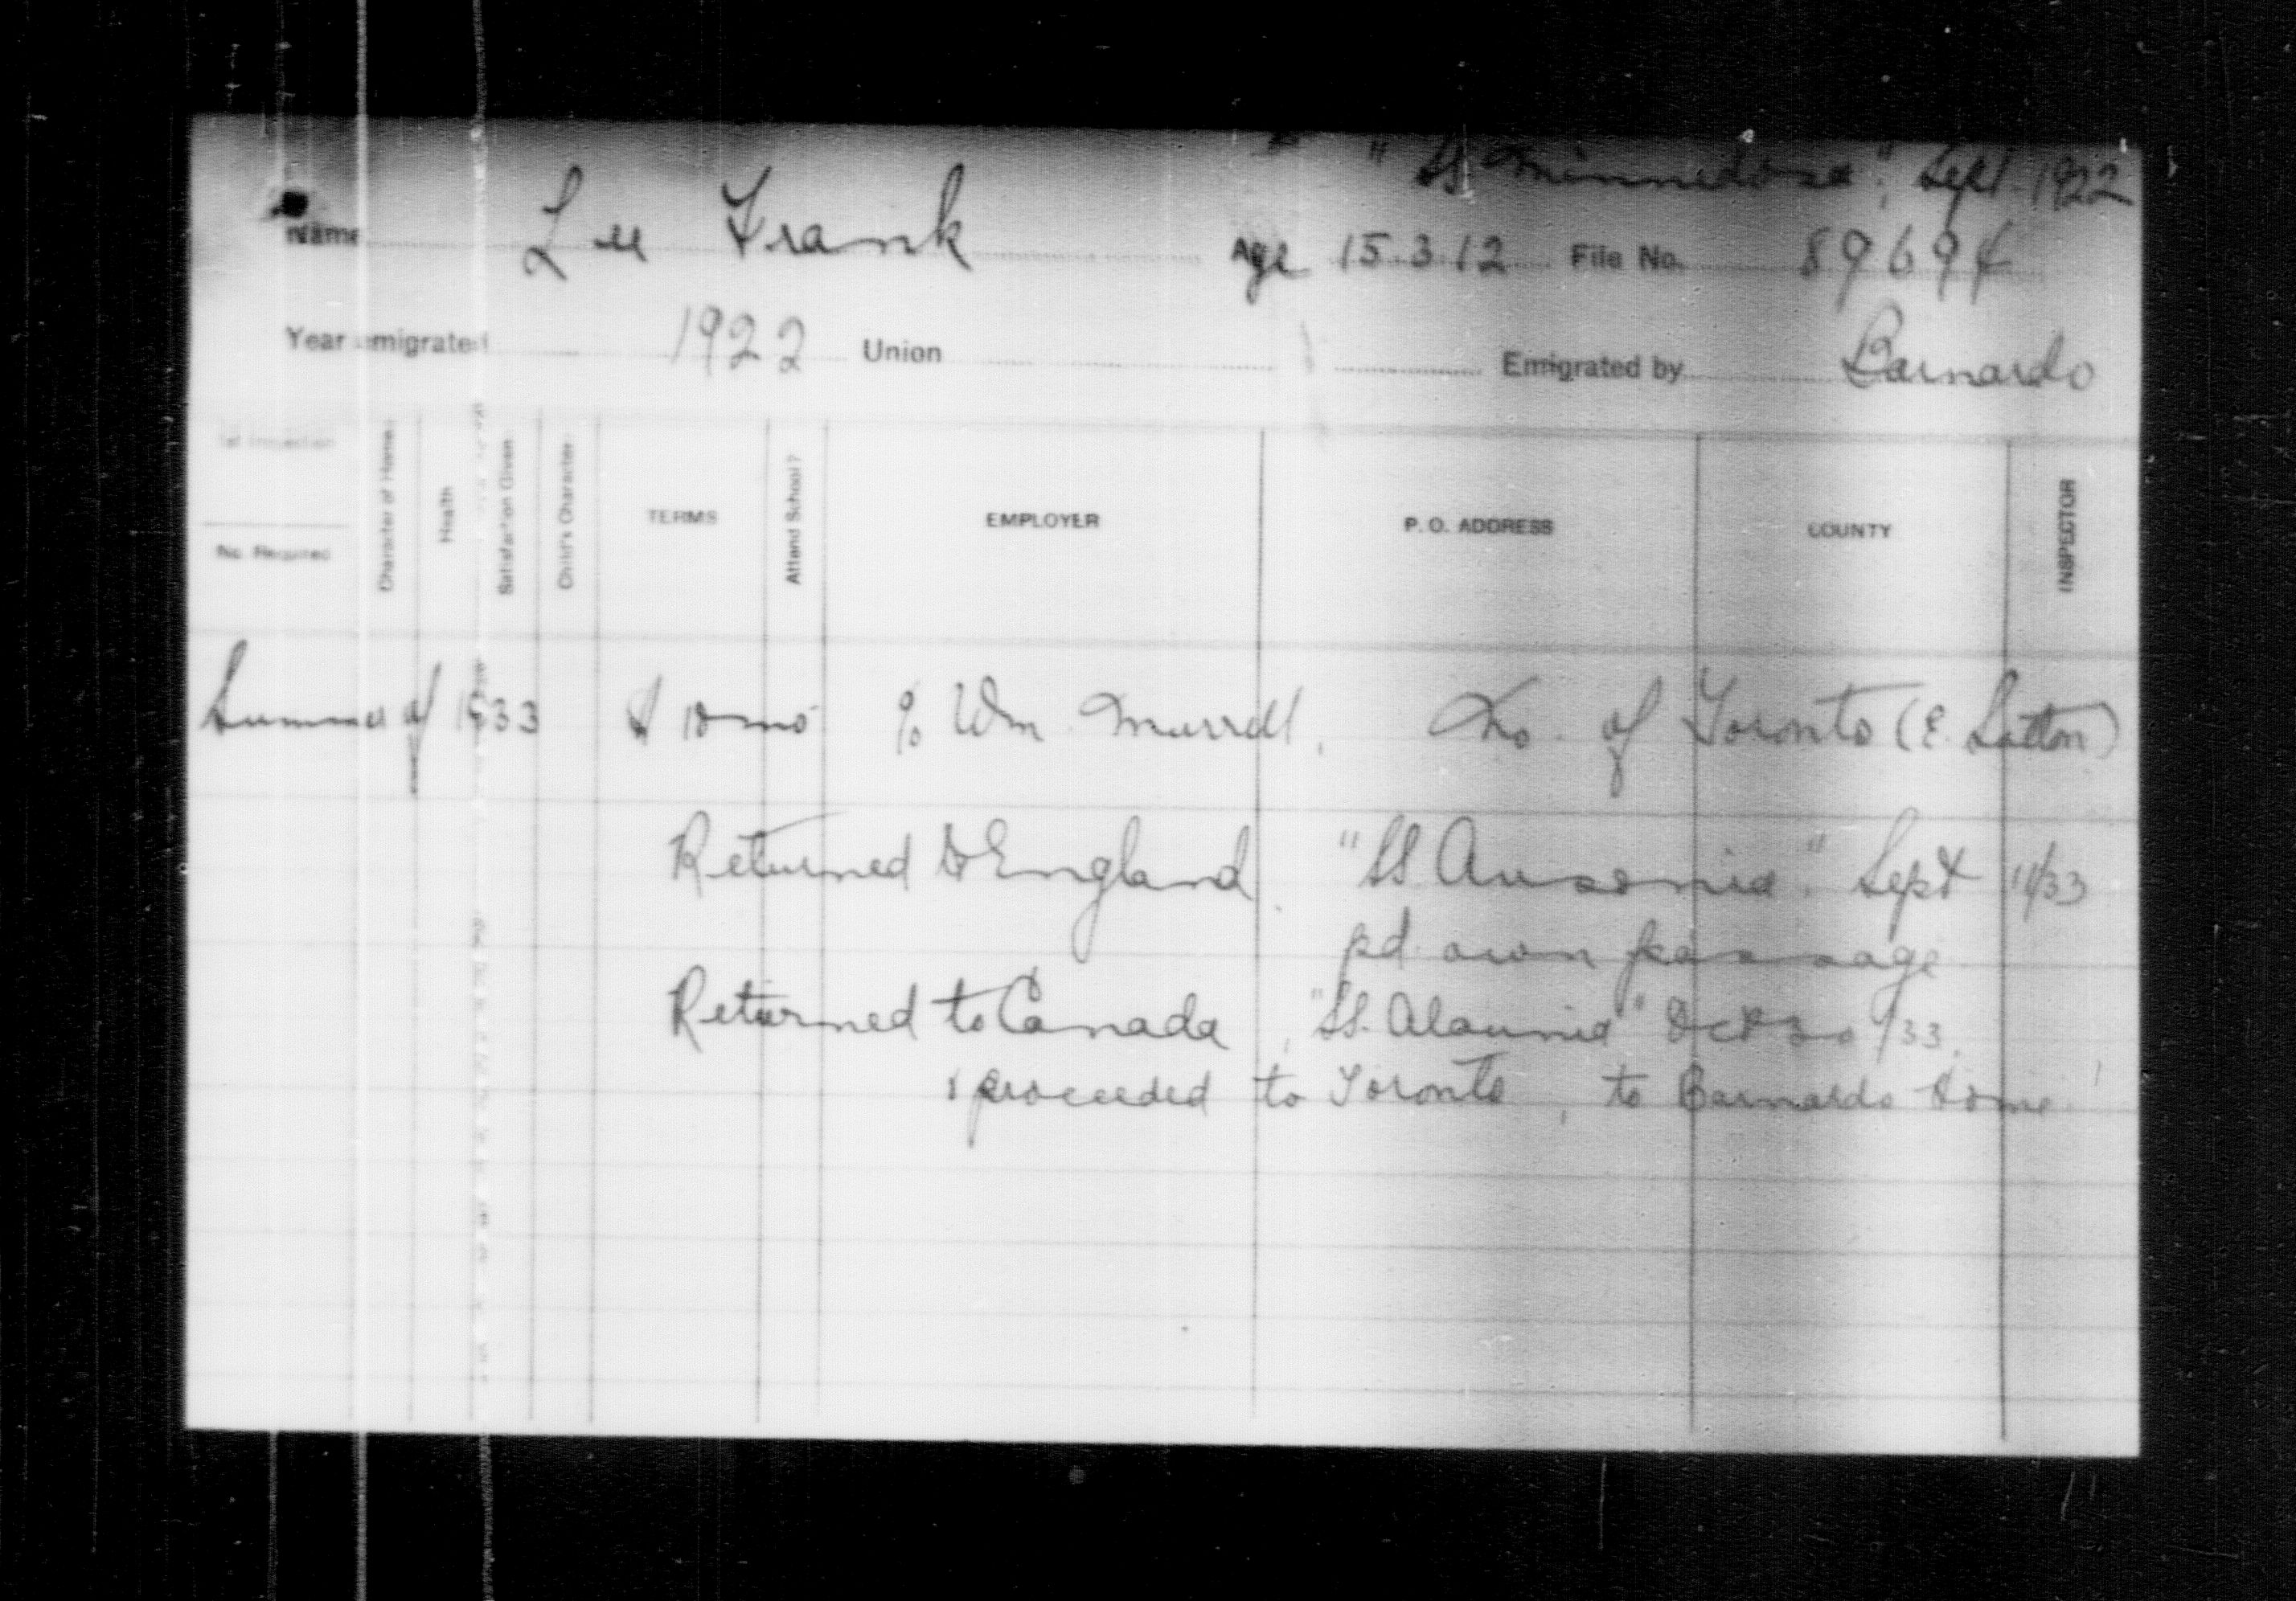 "SS Minnedosa", Sept 1922
Name Lee Frank Age 15.3.12 File No. 89694
Year emigrated 1922 Union Emigrated by Barnardo
1st Inspection
No. Required
Character of Home
Health
Satisfaction Given
Child's Character
TERMS
Attend School?
EMPLOYER
P. O. ADDRESS
COUNTY
INSPECTOR
Summer of 1933 $10 mo % Wm. Murrell, No. of Toronto (E. Sutton)
Returned to England "SS. Ausonia" Sept 11/33
pd. own passage
Returned to Canada, "SS. Alaunia" Oct 20/33,
& proceeded to Toronto, to Barnardo Home